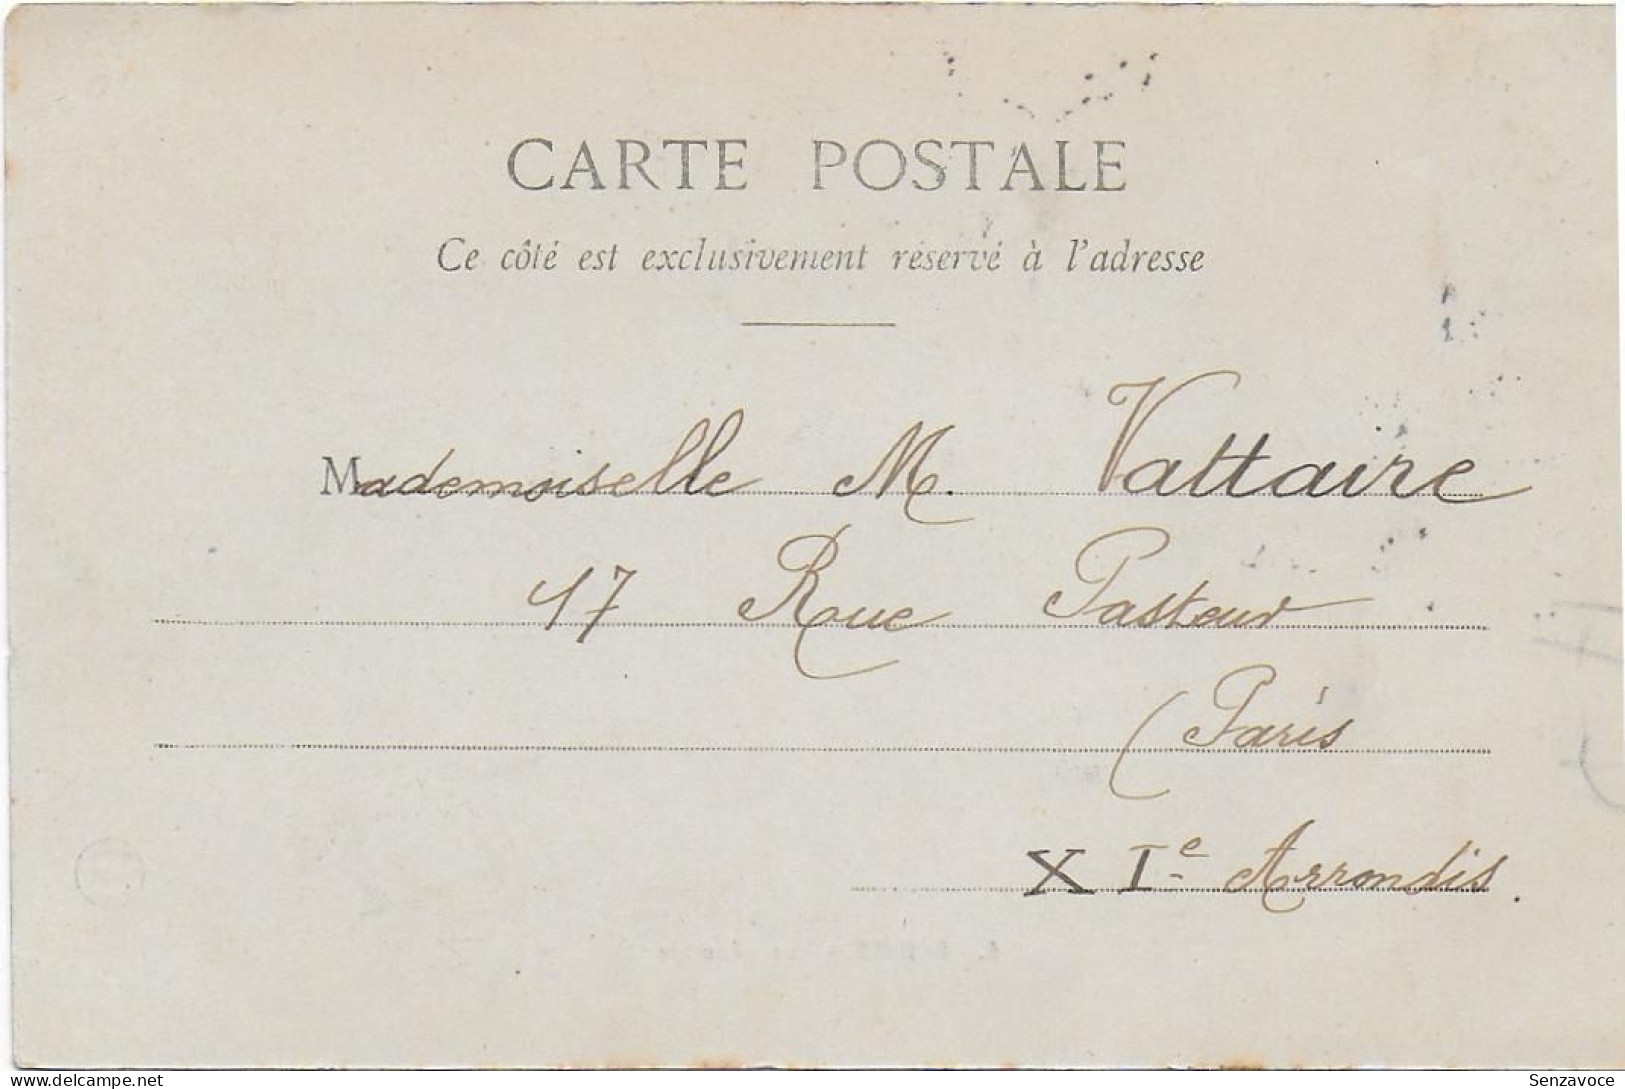 CARTE POSTALE
Ce côté est exclusivement réservé à l'adresse
Mademoiselle M. Vattaire
17 Rue Pasteur
(Paris
XIe Arrondis.
www.delcampe.net
Senzavoce